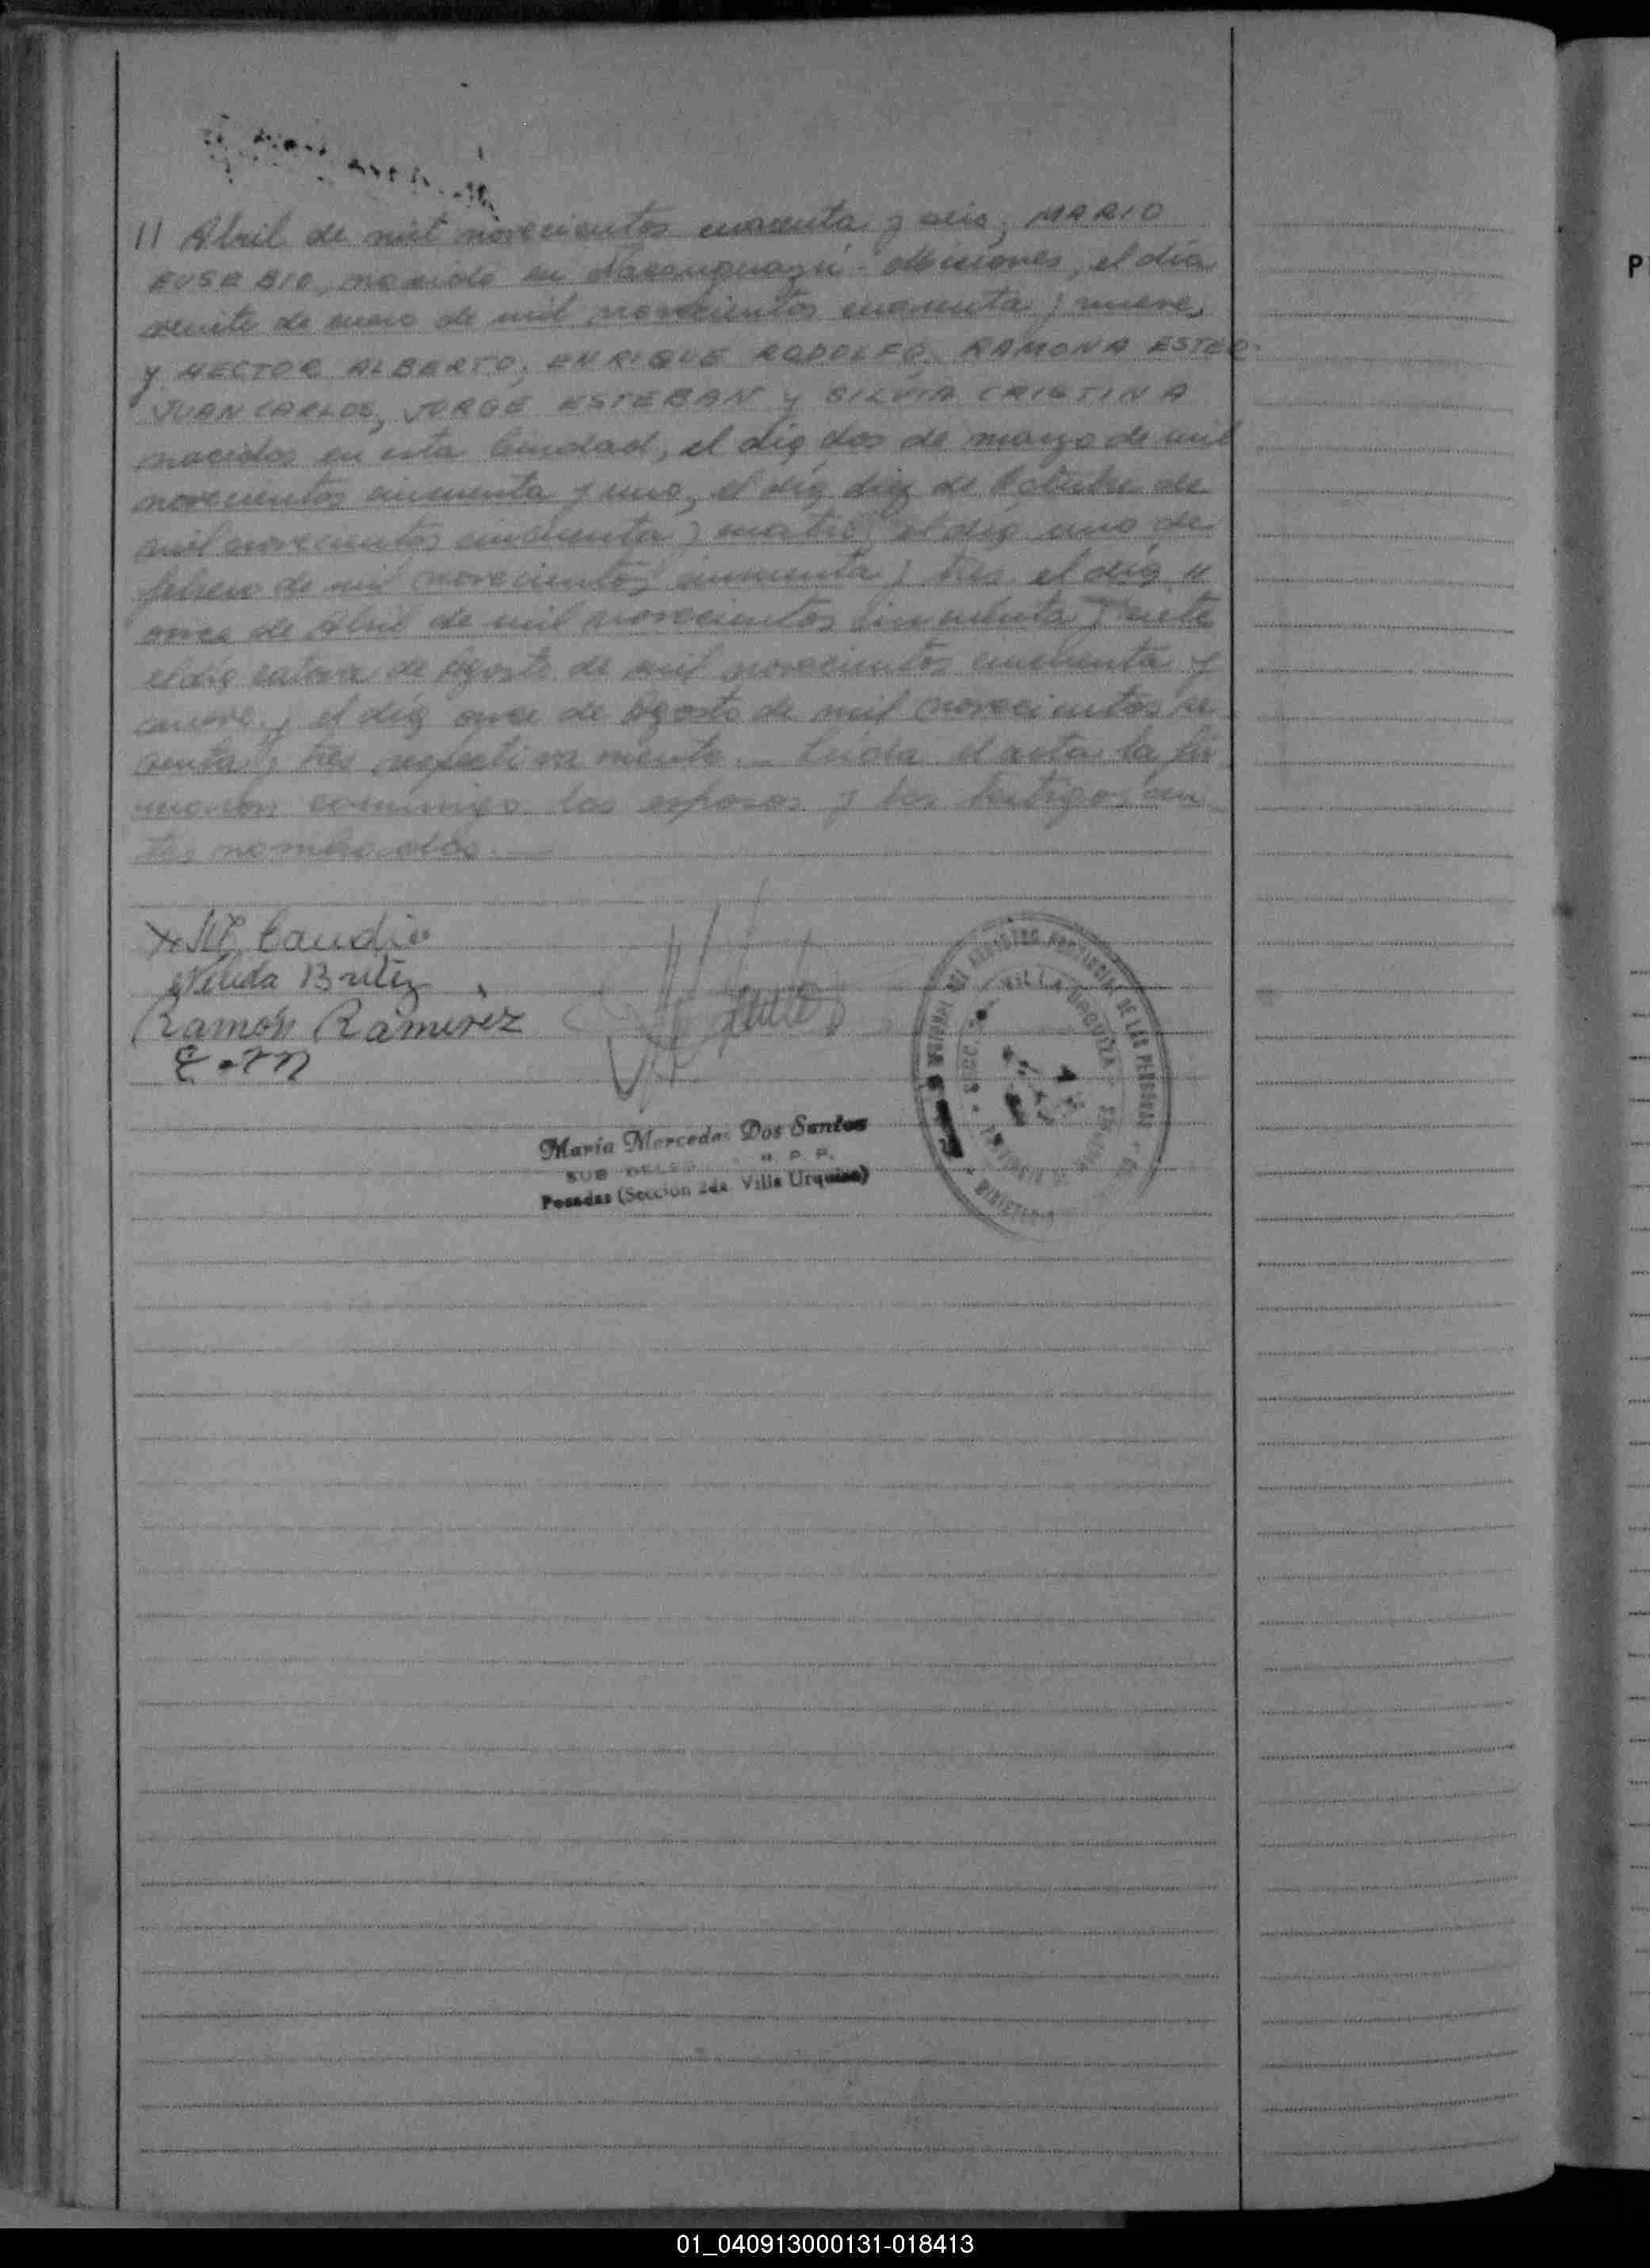 11 Abril de mil novecientos cuarenta y seis, MARIO
EUSEBIO, nacido en Ñacanguazú - Misiones, el día
veinte de enero de mil novecientos cuarenta y nueve,
y HECTOR ALBERTO, ENRIQUE RODOLFO, RAMONA ESTER
JUAN CARLOS, JORGE ESTEBAN y SILVIA CRISTINA
nacidos en esta Ciudad, el día dos de marzo de mil
novecientos cincuenta y uno, el día diez de Octubre de
mil novecientos cincuenta y cuatro, el día uno de
febrero de mil novecientos cincuenta y tres el día 11
once de Abril de mil novecientos cincuenta y siete
el día catorce de Agosto de mil novecientos cincuenta y
nueve, y el día once de Agosto de mil novecientos se
senta y tres respectivamente. - Leída el acta la fir
maron conmigo los esposos y los testigos an
tes nombrados. -
Nelida Britez
Ramón Ramirez
Maria Mercedes Dos Santos
SUB DELEG R. P. P.
Posadas (Sección 2da. Villa Urquiza)
REGISTRO PROVINCIAL DE LAS PERSONAS
VILLA URQUIZA
P
01_040913000131-018413